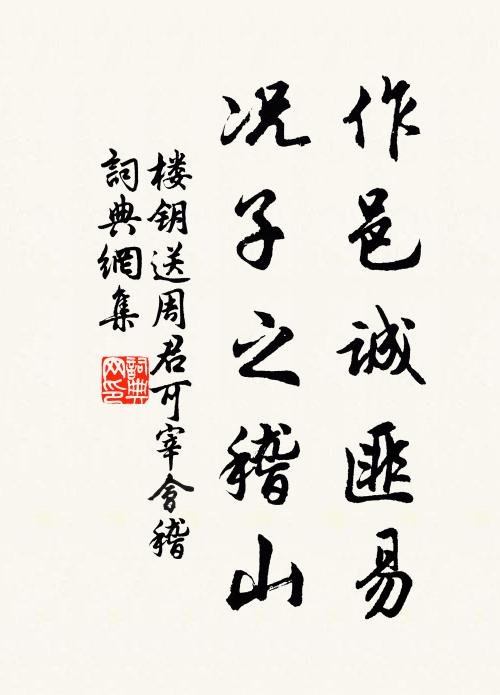 作邑誠匪易
况子之稽山
楼钥送周君可宰會稽
詞典網集
詞典
网印